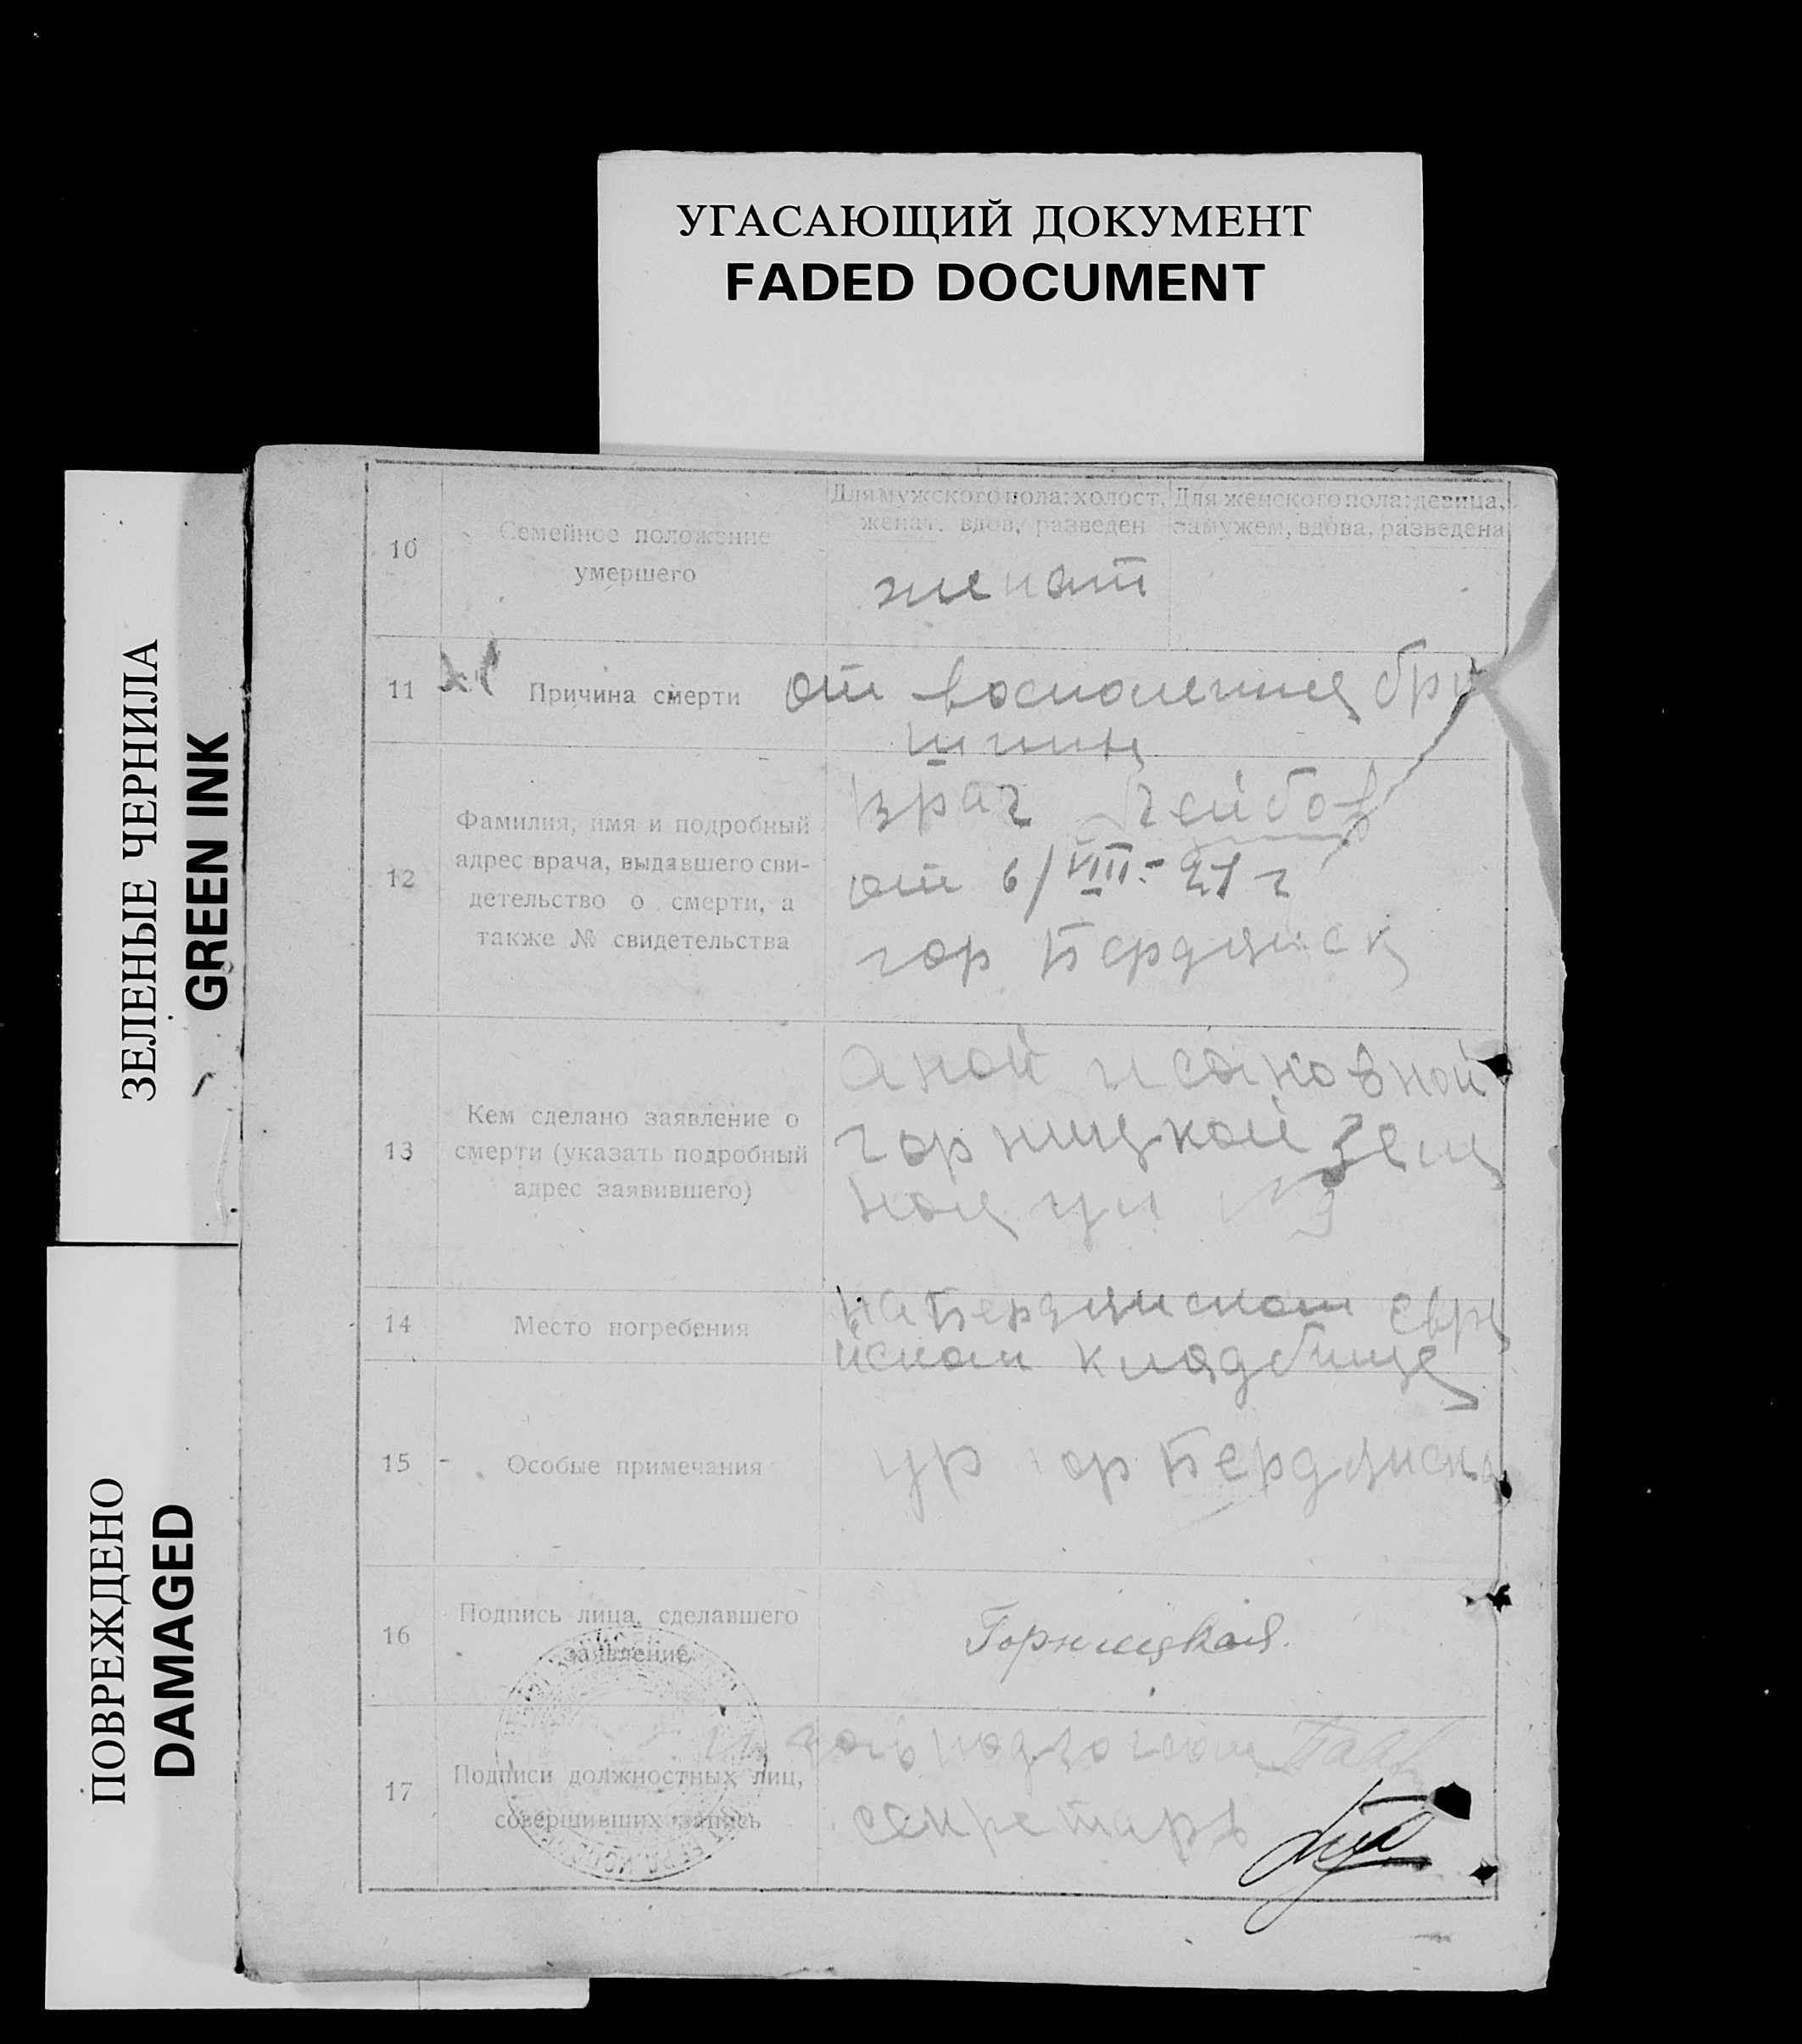 УГАСАЮЩИЙ ДОКУМЕНТ
FADED DOCUMENT
ЗЕЛЕНЫЕ ЧЕРНИЛА
GREEN INK
ПОВРЕЖДЕНО
DAMAGED
10
Семейное положение
умершего
Для мужского пола: холост,
женат, вдов, разведен
Для женского пола: девица,
замужем, вдова, разведена
женат
11
Причина смерти
от воспаления брю
шины
12
Фамилия, имя и подробный
адрес врача, выдавшего сви-
детельство о смерти, а
также № свидетельства
врач Лейбов
от 6/VIII - 21 г
гор Бердянск
13
Кем сделано заявление о
смерти (указать подробный
адрес заявившего)
Аной исаковной
горницкой
ул № 3
14
Место погребения
на Бердянском евре
йском кладбище
15
Особые примечания
ур гор Бердянска
16
Подпись лица, сделавшего
заявление
Горницкая.
17
Подписи должностных лиц,
совершивших запись
секретарь